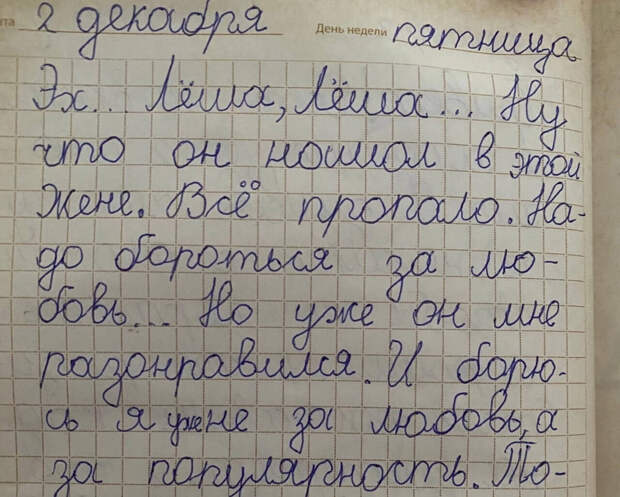 та 2 декабря День недели пятница
Эх.. Лёша, Лёша... Ну
что он нашол в этой
Жене. Всё пропало. На-
до бороться за лю-
бовь... Но уже он мне
разонравился. И борю-
сь я уже не за любовь, а
за популярность. То-